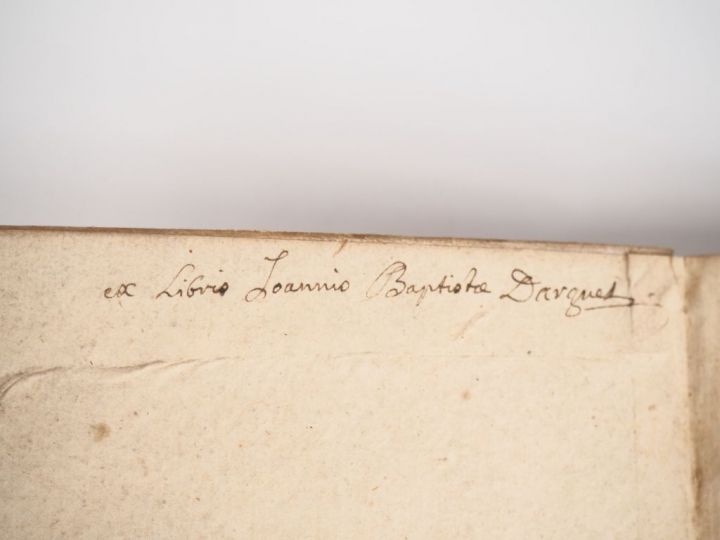 ex Libris Joannis Baptistæ Darquet.